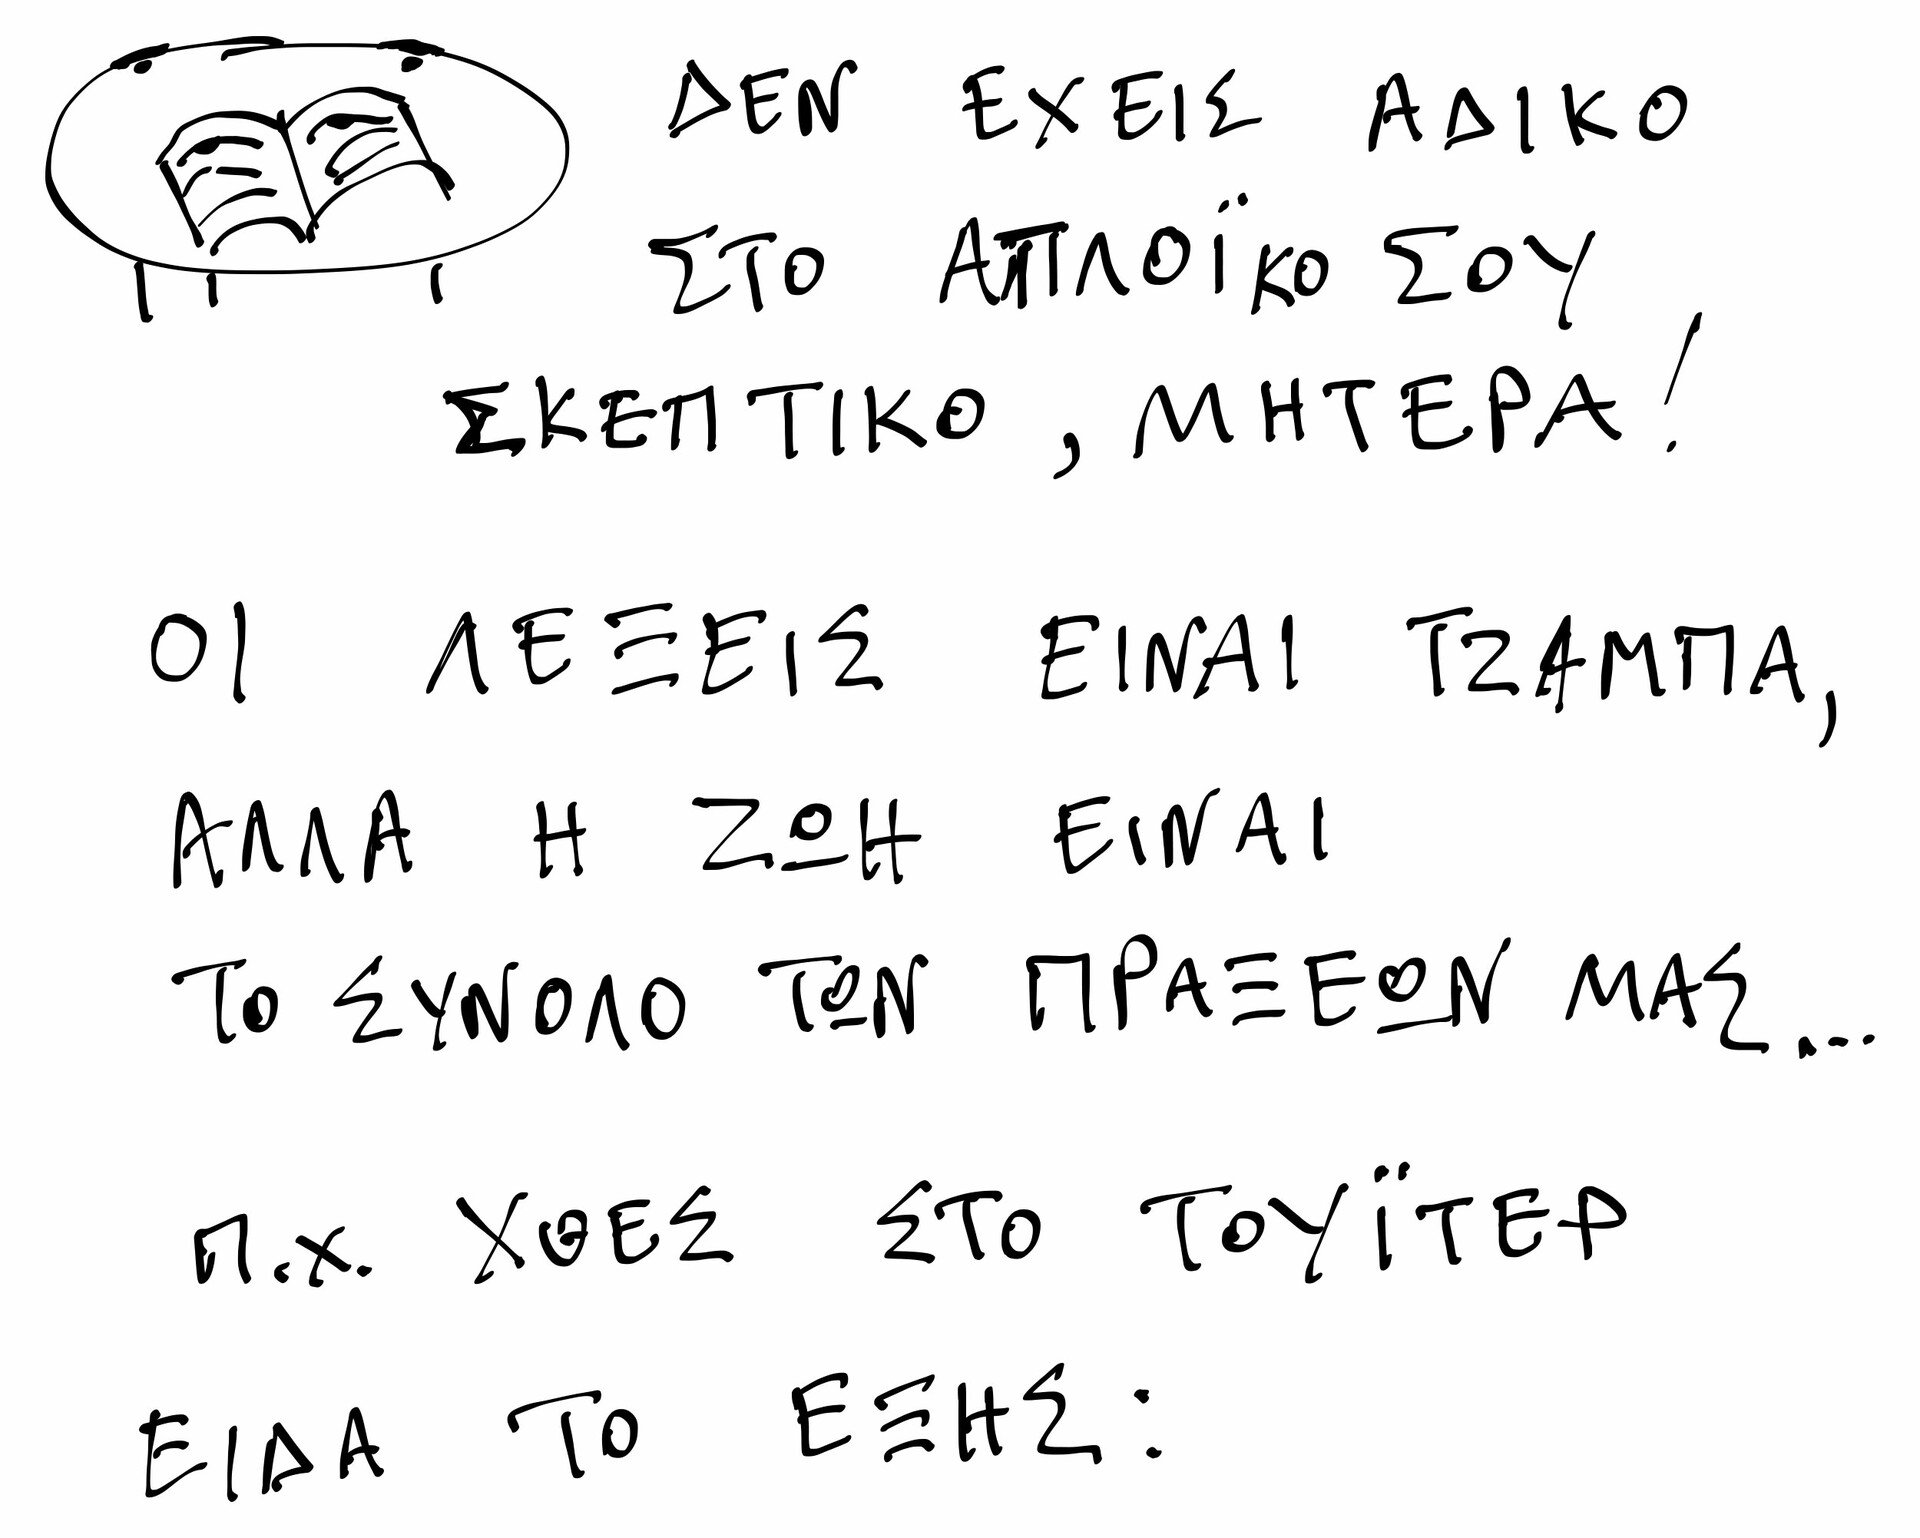 ΔΕΝ ΕΧΕΙΣ ΑΔΙΚΟ
ΣΤΟ ΑΠΛΟΪΚΟ ΣΟΥ
ΣΚΕΠΤΙΚΟ, ΜΗΤΕΡΑ!
ΟΙ ΛΕΞΕΙΣ ΕΙΝΑΙ ΤΖΑΜΠΑ,
ΑΛΛΑ Η ΖΩΗ ΕΙΝΑΙ
ΤΟ ΣΥΝΟΛΟ ΤΩΝ ΠΡΑΞΕΩΝ ΜΑΣ...
Π.Χ. ΧΘΕΣ ΣΤΟ ΤΟΥΪΤΕΡ
ΕΙΔΑ ΤΟ ΕΞΗΣ: